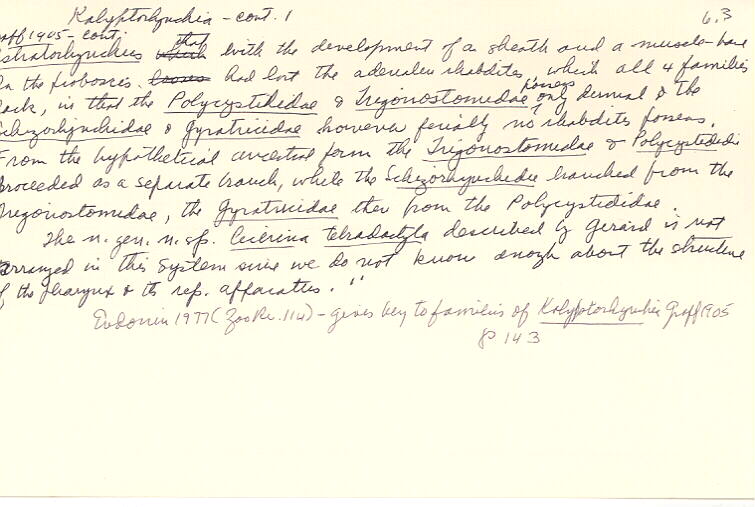 Kalyptorhynchia - cont. 1 6.3
aff 1905 - cont.
stratorhynchus which that with the development of a sheath and a muscle-
In the proboscis. had lost the adenalen rhabdites, which all 4 families
lack, is that the Polycystididae & Trigonostomidae posess only dermal & the
Schizorhynchidae & Gyratricidae however finally no rhabdites posess.
From the hypothetical ancestral form the Trigonostomidae & Polycystidid
proceeded as a separate branch, while the Schizorhynchidae branched from the
Trigonostomidae, the Gyratricidae then from the Polycystididae.
The n. gen. n. sp. Cicerina tetradactyla described by Gerard is not
arranged in this System since we do not know enough about the structure
of the pharynx & its rep. apparatus."
Evdonin 1977 (Zool Rec. 114) - gives key to families of Kalyptorhynchia Graff 1905
P 143